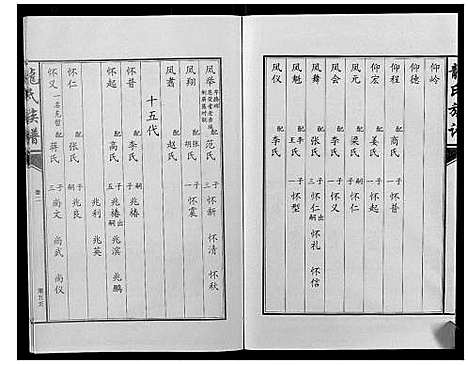 龍氏族譜
仰岭
仰德
仰程 配商氏 一子 怀普
仰宏 配姜氏 一子 怀起
凤元 配梁氏 嗣子 怀仁
凤会 配李氏 一子 怀义
凤舞 配李氏 三子 怀仁 出嗣 怀礼 怀信
凤魁 配李氏 王氏 一子 怀型
凤仪 配李氏
凤举 配范氏 三子 怀新 怀清 怀秋
凤翔 配张氏 胡氏 一子 怀震
凤翥 配赵氏
十五代
怀普 配李氏 嗣子 兆椿
怀起 配高氏 五子 兆椿 出嗣 兆滨 兆鹏
兆利 兆英
怀仁 配张氏 嗣子 兆良
怀义 一名克哲 配蒋氏 三子 尚文 尚武 尚仪
龍氏族譜
卷二